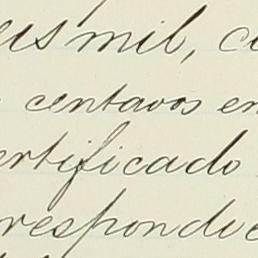 eis mil, c
centavos en
ertificado
respondie